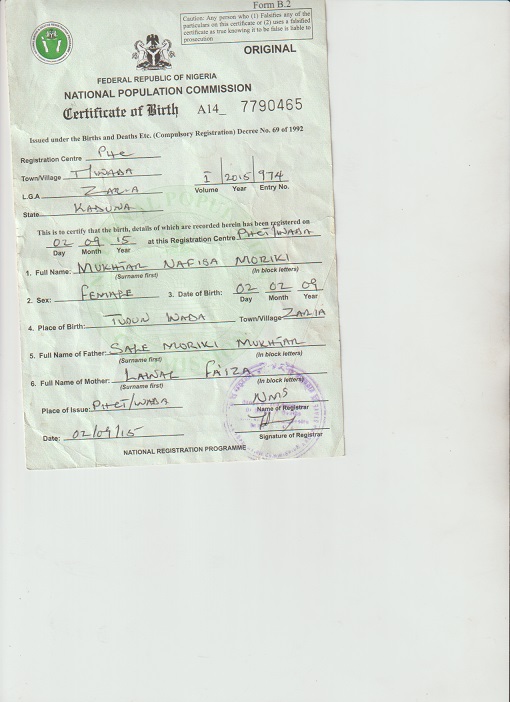 Form B.2
Caution: Any person who (1) Falsifies any of the
particulars on this certificate or (2) uses a falsified
certificate as true knowing it to be false is liable to
prosecution
ORIGINAL
FEDERAL REPUBLIC OF NIGERIA
NATIONAL POPULATION COMMISSION
Certificate of Birth A14_ 7790465
Issued under the Births and Deaths Etc. (Compulsory Registration) Decree No. 69 of 1992
Registration Centre PHC
Town/Village T/WADA
I 2015 974
L.G.A ZARIA
Volume Year Entry No.
State KADUNA
This is to certify that the birth, details of which are recorded herein has been registered on
02 09 15 at this Registration Centre PHCT/WADA
Day Month Year
1. Full Name: MUKHTAR NAFISA MORIKI
(Surname first) (In block letters)
2. Sex: FEMALE 3. Date of Birth: 02 02 09
Day Month Year
4. Place of Birth: TUDUN WADA Town/Village ZARIA
5. Full Name of Father: SALE MORIKI MUKHTAR
(Surname first) (In block letters)
6. Full Name of Mother: LAWAL FAIZA
(Surname first) (In block letters)
Place of Issue: PHCT/WADA
NMS
Name of Registrar
Date: 02/09/15
Signature of Registrar
NATIONAL REGISTRATION PROGRAMME